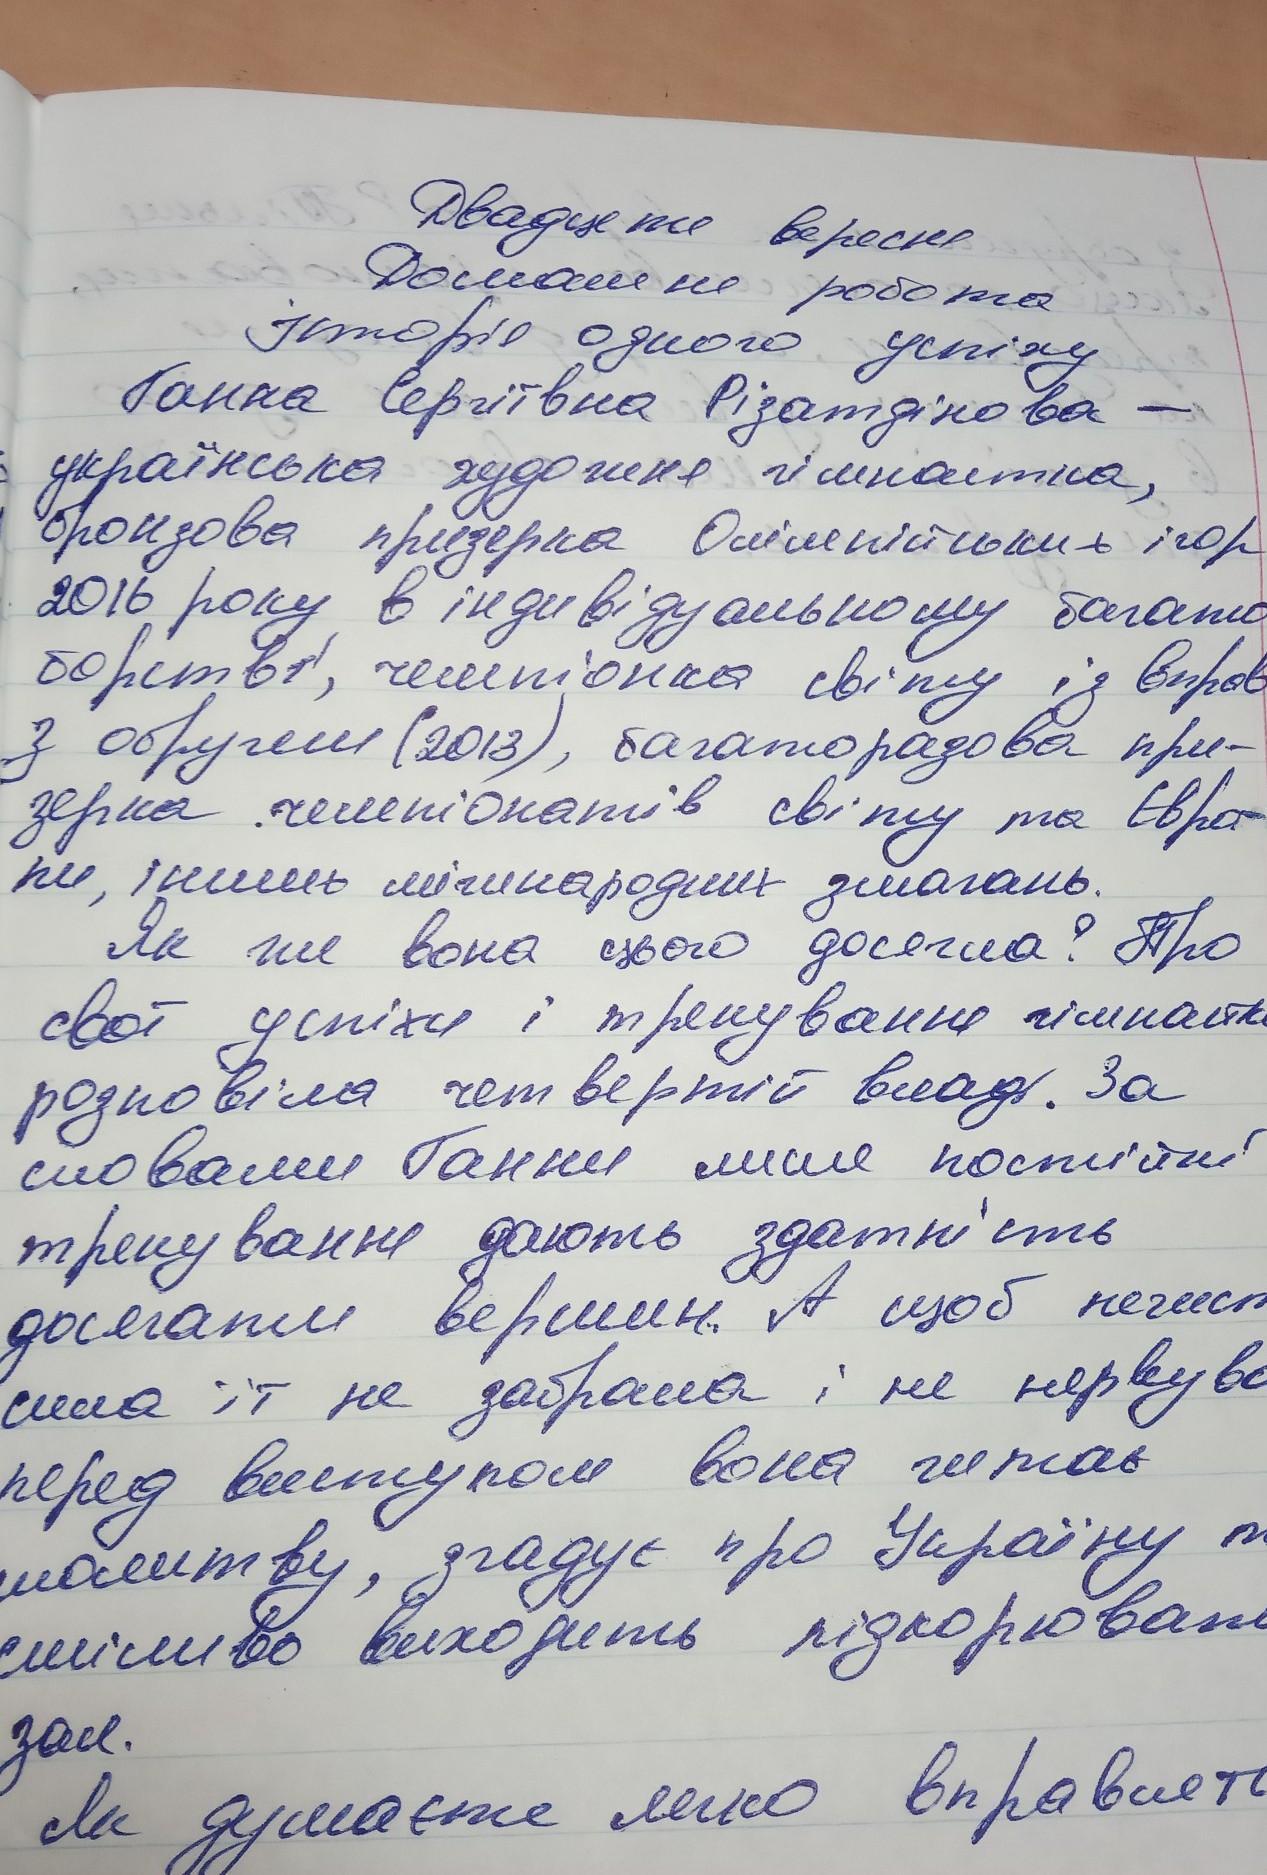 Двадцяте вересня
Домашня робота
Історія одного успіху
Ганна Сергіївна Різатдінова —
українська художня гімнастка,
бронзова призерка Олімпійських ігор
2016 року в індивідуальному багато
борстві, чемпіонка світу із вправ
з обручем (2013), багаторазова при-
зерка чемпіонатів світу та Євро-
пи, інших міжнародних змагань.
Як же вона цього досягла? Про
свої успіхи і тренування гімнастка
розповіла четвертій владі. За
словами Ганни лише постійні
тренування дають здатність
досягати вершин. А щоб нечист
сила її не забрала і не нервува
перед виступом вона читає
молитву, згадує про Україну т
сміливо виходить підкорювати
зал.
Як думаєте легко вправлять